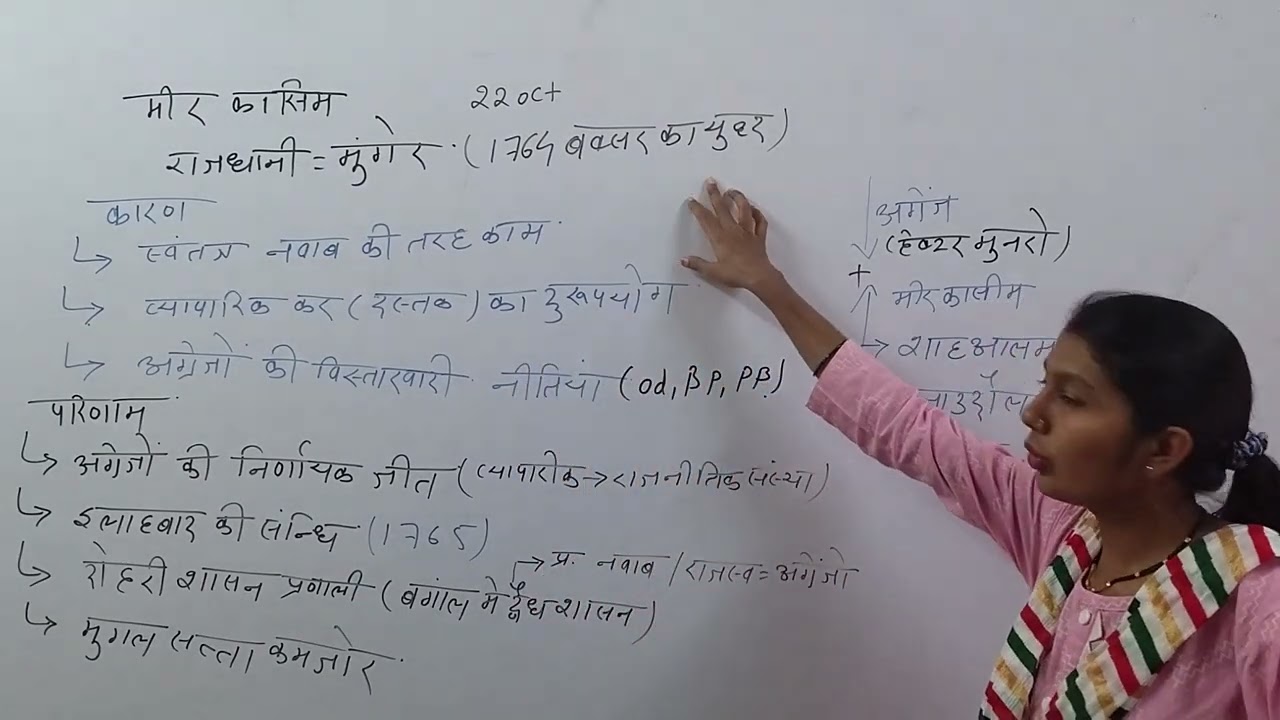 मीर कासिम
22 oct
राजधानी = मुंगेर (1764 बक्सर का युद्ध)
कारण
↳ स्वंतत्र नवाब की तरह काम
↳ व्यापारिक कर (दस्तक) का दुरूपयोग
↳ अग्रेजों की विस्तारवारी नीतियां (od, BP, PB)
परिणाम
↳ अग्रेजों की निर्णायक जीत (व्यापारीक → राजनीतिक संस्था)
↳ इलाहबार की संन्धि (1765)
→ प्र. नवाब / राजस्व = अग्रेंजो
↳ रोहरी शासन प्रणाली (बगांल मे द्वैध शासन)
↳ मुगल सत्ता कमजोर
अग्रेंज
(हेक्टर मुनरो)
+
मीर कासीम
→ शाह आलम